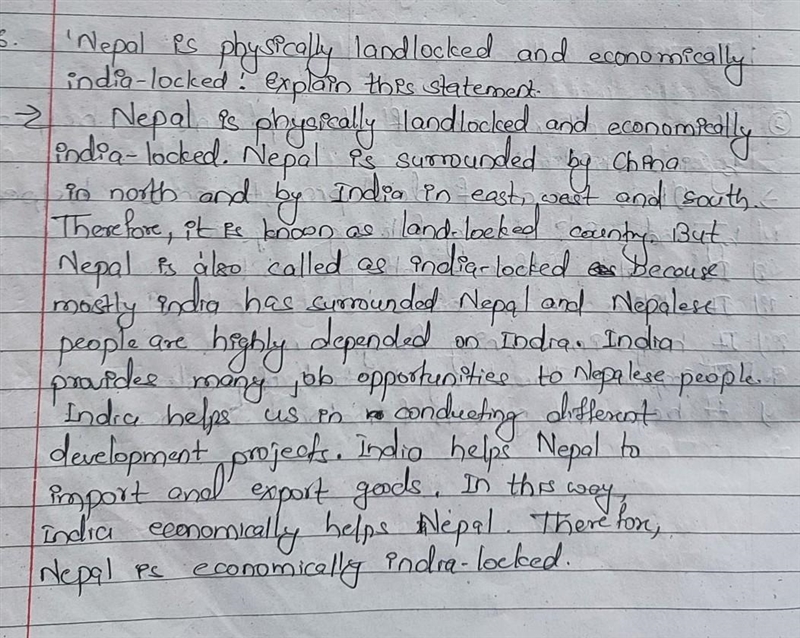 'Nepal is physically landlocked and economically
india-locked'. explain this statement.
→ Nepal is physically landlocked and economically
india-locked. Nepal is surrounded by China
in north and by India in east, west and south.
Therefore, it is known as land-locked country. But
Nepal is also called as india-locked because
mostly india has surrounded Nepal and Nepalese
people are highly depended on India. India
provides many job opportunities to Nepalese people.
India helps us in conducting different
development projects. India helps Nepal to
import and export goods. In this way,
India economically helps Nepal. Therefor,
Nepal is economically india-locked.